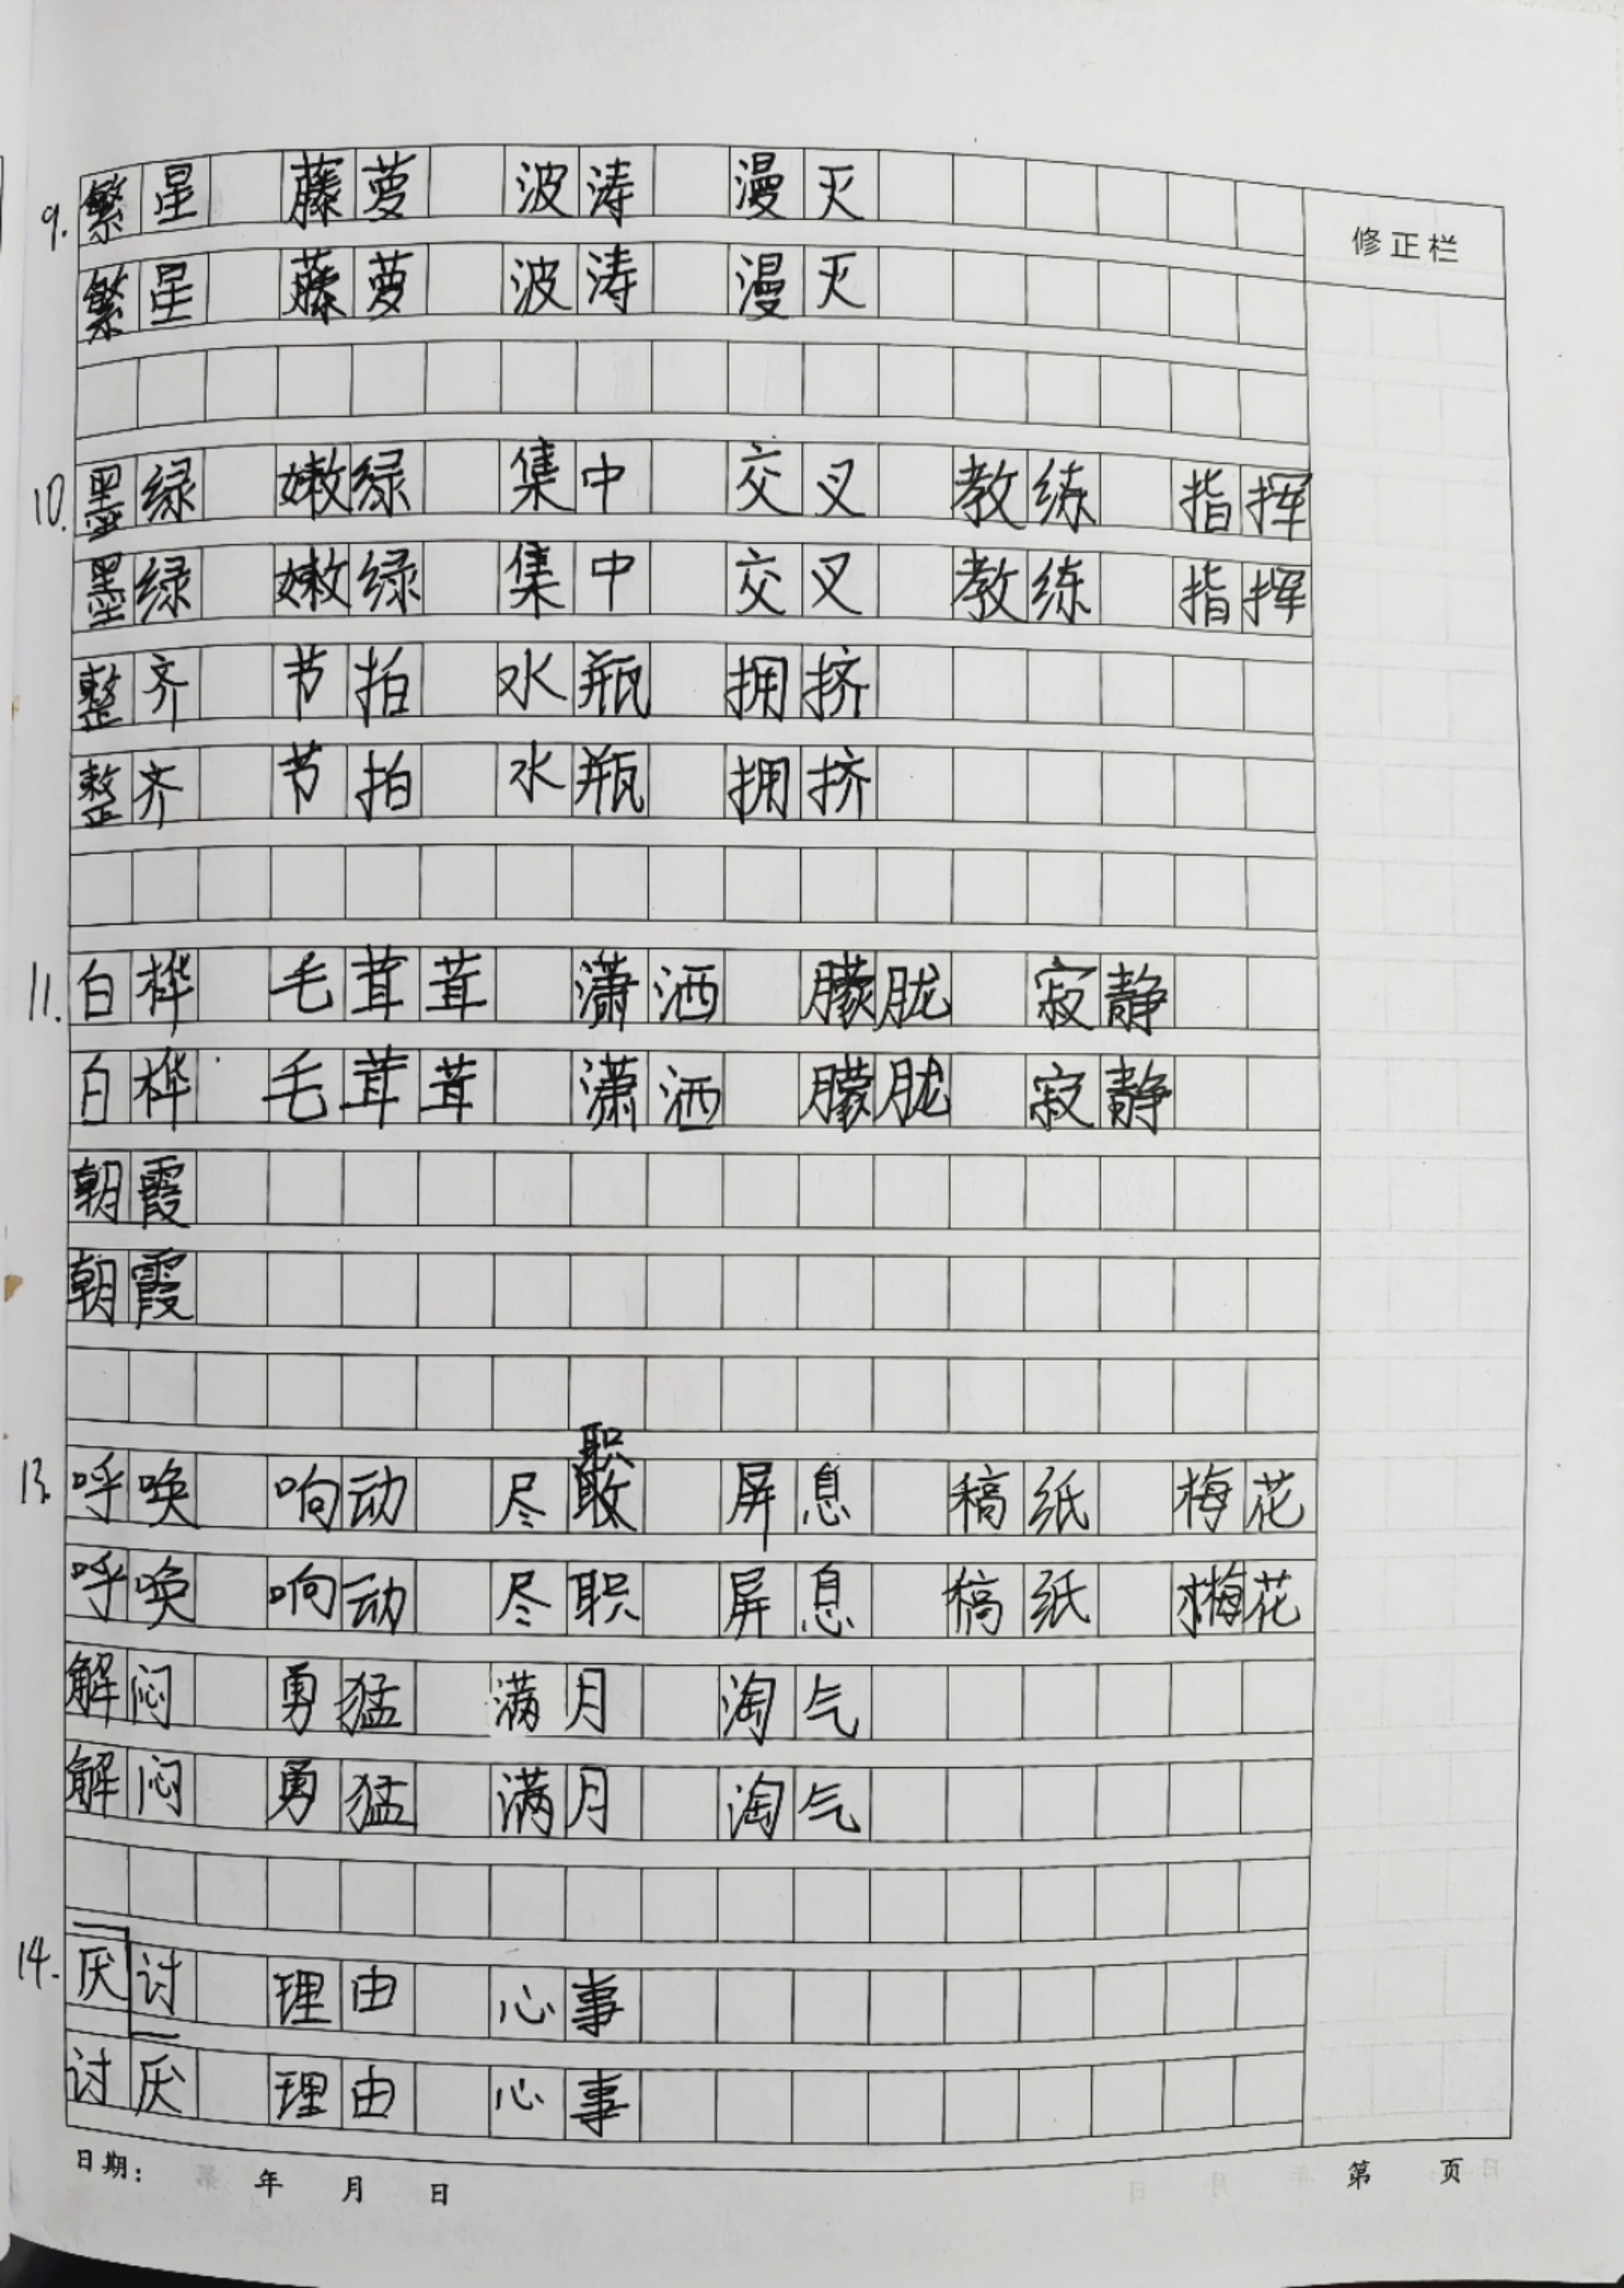 9. 繁星 藤萝 波涛 漫灭
修正栏
繁星 藤萝 波涛 漫灭
10. 墨绿 嫩绿 集中 交叉 教练 指挥
墨绿 嫩绿 集中 交叉 教练 指挥
整齐 节拍 水瓶 拥挤
整齐 节拍 水瓶 拥挤
11. 白桦 毛茸茸 潇洒 朦胧 寂静
白桦 毛茸茸 潇洒 朦胧 寂静
朝霞
朝霞
职
13. 呼唤 响动 尽敢 屏息 稿纸 梅花
呼唤 响动 尽职 屏息 稿纸 梅花
解闷 勇猛 满月 淘气
解闷 勇猛 满月 淘气
14. 厌讨 理由 心事
讨厌 理由 心事
日期： 年 月 日 第 页